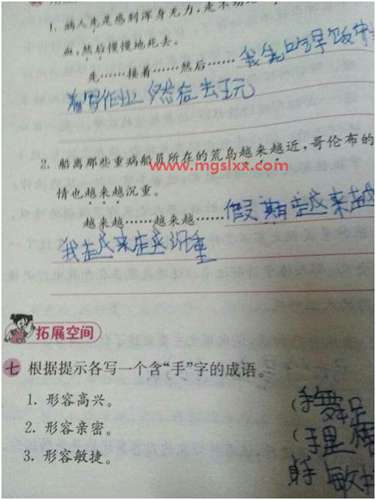 1. 病人先是感到浑身无力,走不动
血,然后慢慢地死去。
先……接着……然后……我先吃早饭
着写作业 然后去玩
2. 船离那些重病船员所在的荒岛越来越近,哥伦布的
www.mgslxx.com
情也越来越沉重。
越来越……越来越……假期越来越
我越来越沉重
拓展空间
七 根据提示各写一个含“手”字的成语。
1. 形容高兴。
(手舞足
2. 形容亲密。
(手
3. 形容敏捷。
手 敏捷